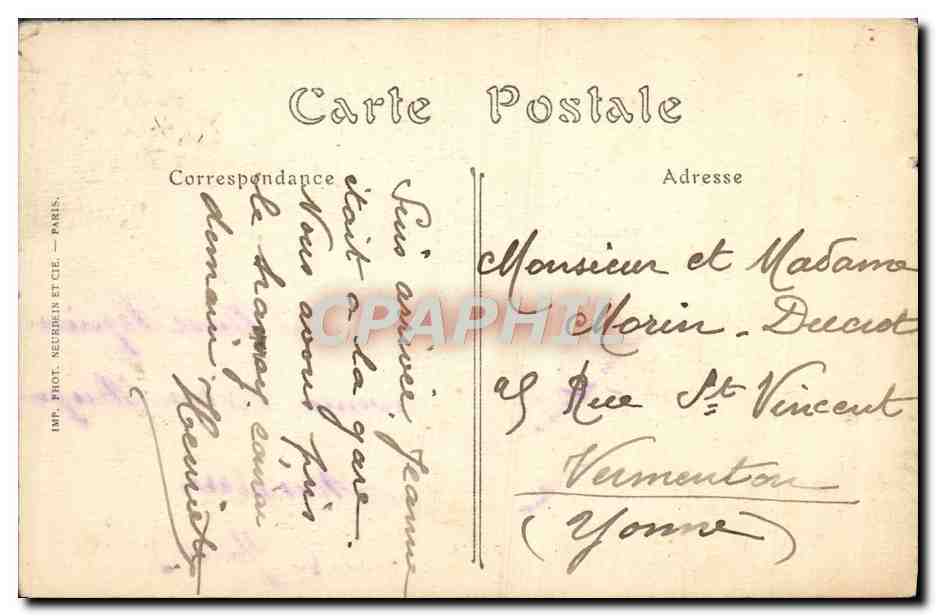 Carte Postale
Correspondance
Adresse
Suis arrivée, Jeanne
était à la gare.
Nous avons pris
le tramway.
demain, Henriette
Monsieur et Madame
Morin - Ducrot
25 Rue St Vincent
Vermenton
(Yonne)
IMP. PHOT. NEURDEIN ET CIE. — PARIS.
CPAPHIL